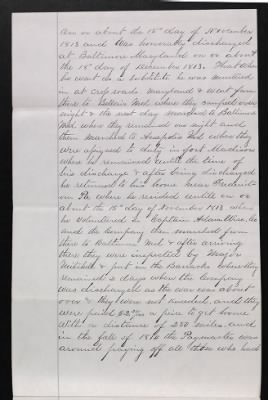 on or about the 18th day of November
1813 and was honorably discharged
at Baltimore Maryland on or about
the 18th day of December 1813. That when
he went as a substitute he was mustered
in at cross roads Maryland & went from
there to Bellair Md where they camped over
night & the next day marched to Baltimore
Md where they remained one night and
then marched to Anapolis Md where they
were assigned to duty in fort Madison
where he remained until the time of
his discharge & after being discharged
he returned to his home near
Pa where he resided until on or
about the 15th day of November 1813 when
he volunteered in Captain Adam Co
and the Company then marched from
there to Baltimore Md & after arriving
there they were inspected by Major
Mitchel & put in the Barracks where they
remained days when the Company
was discharged as the war was about
over & they were not needed and they
were paid a piece to get home
with a distance of 230 miles and
in the fall of the Paymaster was
around paying off all those who had